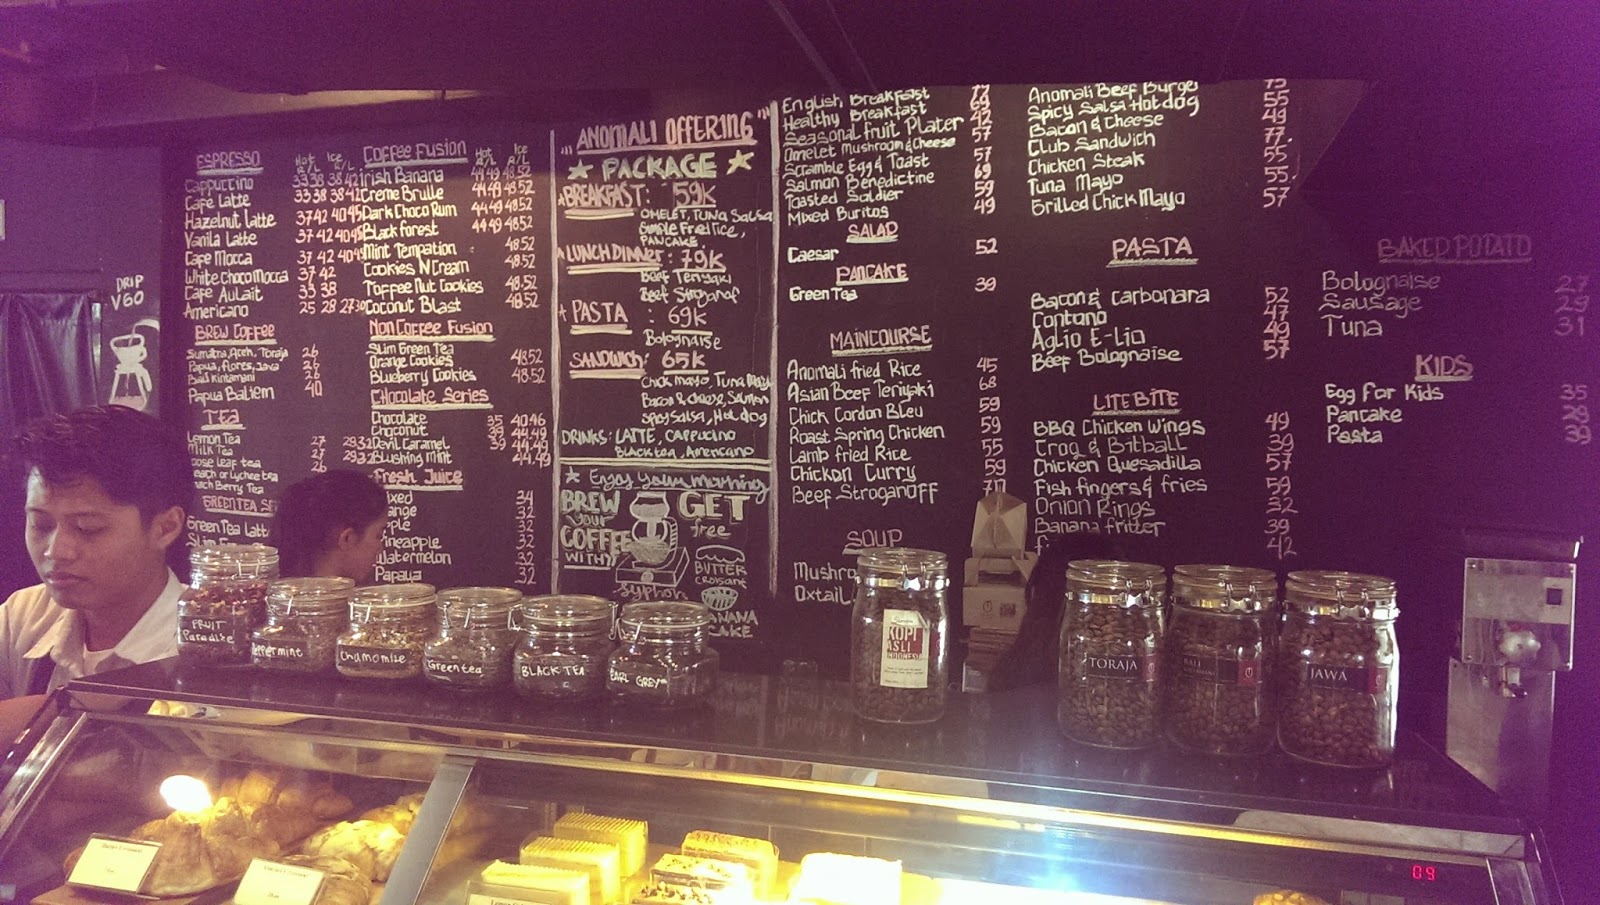 DRIP
V60
ESPRESSO
Hot R/L Ice R/L
Cappuccino 33 38 38 42
Cafe Latte 33 38 38 42
Hazelnut Latte 37 42 40 45
Vanila Latte 37 42 40 45
Cafe Mocca 37 42 40 45
White Choco Mocca 37 42
Cafe Aulait 33 38
Americano 25 28 27 30
BREW COFFEE
Sumatra, Aceh, Toraja 26
Papua, flores, Java 26
Bali Kintamani 26
Papua Baliem 40
TEA
Lemon Tea 27 29 32
Milk Tea 27 29 32
oose leaf tea 26
each or lychee tea
each Berry Tea
GREEN TEA SE
Green Tea Latte
Coffee Fusion
Hot R/L Ice R/L
Irish Banana 44 49 48 52
Creme Brulle 44 49 48 52
Dark Choco Rum 44 49 48 52
Black forest 44 49 48 52
Mint Tempation 48.52
Cookies N Cream 48.52
Toffee Nut Cookies 48.52
Coconut Blast 48.52
NON COFFEE FUSION
Slim Green Tea 48.52
Orange Cookies
Blueberry Cookies 48.52
CHOCOLATE SERIES
Chocolate 35 40.46
Choconut 39 44.49
Devil Caramel 39 44.49
Blushing Mint 44.49
Fresh Juice
ixed 34
ange 32
ple 32
ineapple 32
Watermelon 32
Papaya 32
"ANOMALI OFFERING"
PACKAGE
BREAKFAST: 59K
OMELET, TUNA Salsa
Simple Fried rice,
PANCAKE
LUNCH DINNER: 79K
Beef Teriyaki
Beef Stroganof
PASTA : 69K
Bolognaise
SANDWICH: 65K
Chick Mayo, Tuna Mayo
Bacon & cheese, Salmon
Spicy Salsa, Hot dog
DRINKS: LATTE, CAPPUCINO
BLACK tea, Americano
Enjoy Your morning
BREW
YOUR
COFFEE
WITH
syphon
GET
free
BUTTER
CROISANT
ANANA
CAKE
English Breakfast 77
Healthy Breakfast 69
Seasonal fruit Plater 42
Omelet Mushroom & Cheese 57
Scramble Egg & Toast 57
Salmon Benedictine 69
Toasted Soldier 59
Mixed Buritos 49
SALAD
Caesar 52
PANCAKE
Green Tea 39
MAINCOURSE
Anomali fried Rice 45
Asian Beef Teriyaki 68
Chick Cordon Bleu 59
Roast Spring Chicken 59
Lamb fried Rice 55
Chicken Curry 59
Beef StroganOFF
SOUP
Mushro
Oxtail
Anomali Beef Burger 75
Spicy Salsa Hotdog 55
Bacon & Cheese 49
Club Sandwich 77.
Chicken Steak 55
Tuna Mayo 55.
Grilled Chick Mayo 57
PASTA
Bacon & Carbonara 52
Contano 47
Aglio E-Lio 49
Beef Bolognaise 57
LITE BITE
BBQ Chicken Wings 49
Crog & Bitball 39
Chicken Quesadilla 57
Fish fingers & fries 59
Onion Rings 32
Banana fritter 39
42
BAKED POTATO
Bolognaise 27
Sausage 29
Tuna 31
KIDS
Egg for Kids 35
Pancake 29
Pasta 39
FRUIT
Paradise
Peppermint
Chamomile
Green tea
BLACK TEA
EARL GREY
KOPI
ASLI
INDONESIA
TORAJA
BALI
JAWA
09